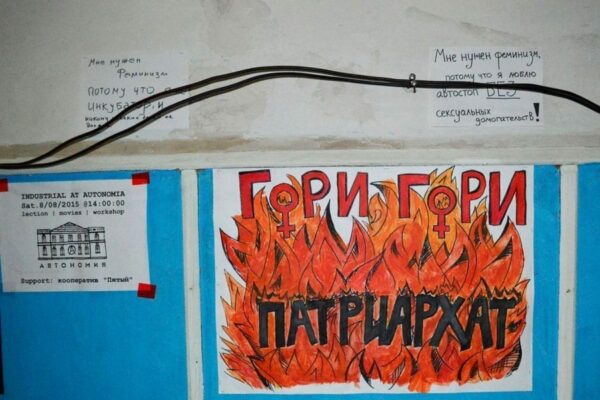 Мне нужен
Феминизм
потому что я
инкубатор.и
Мне нужен феминизм,
потому что я люблю
автостоп БЕЗ
сексуальных
домогательств!
INDUSTRIAL AT AUTONOMIA
Sat.8/08/2015 @14:00:00
lection | movies | workshop
АВТОНОМИЯ
Support: кооператив "Пятый"
ГОРИ ГОРИ
ПАТРИАРХАТ